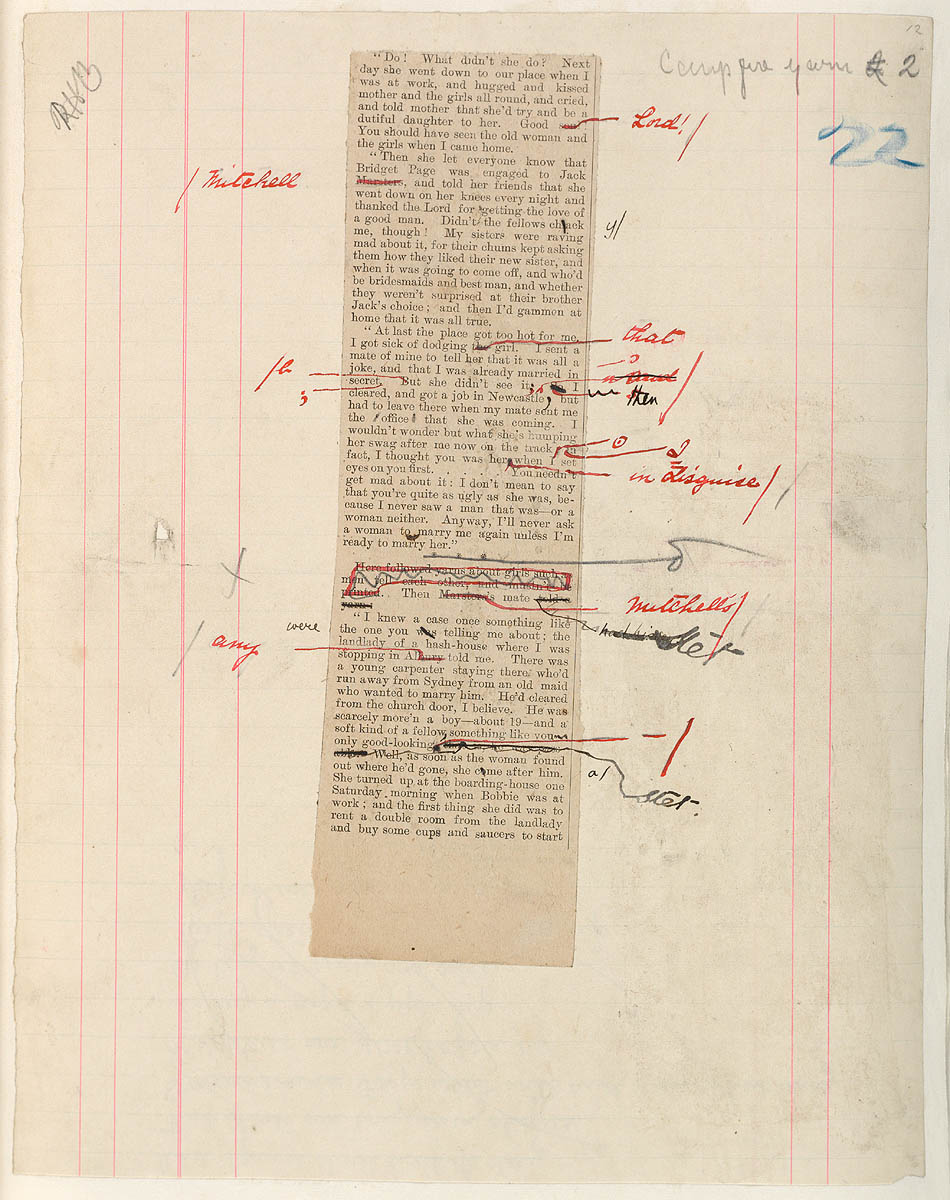 12
Camp fire yarn 2
22
"Do! What didn't she do? Next
day she went down to our place when I
was at work, and hugged and kissed
mother and the girls all round, and cried,
and told mother that she'd try and be a
dutiful daughter to her. Good
Lord!/
You should have seen the old woman and
the girls when I came home.
"Then she let everyone know that
Bridget Page was engaged to Jack
/Mitchell
Marsters, and told her friends that she
went down on her knees every night and
thanked the Lord for getting the love of
a good man. Didn't the fellows chack
y/
me, though! My sisters were raving
mad about it, for their chums kept asking
them how they liked their new sister, and
when it was going to come off, and who'd
be bridesmaids and best man, and whether
they weren't surprised at their brother
Jack's choice; and then I'd gammon at
home that it was all true.
"At last the place got too hot for me.
that
I got sick of dodging the girl. I sent a
mate of mine to tell her that it was all a
joke, and that I was already married in
/b
secret. But she didn't see it; So I
then
;
cleared, and got a job in Newcastle, but
had to leave there when my mate sent me
the office that she was coming. I
wouldn't wonder but what she's humping
her swag after me now on the track. In
fact, I thought you was her when I set
eyes on you first. . . . You needn't
in disguise/
get mad about it: I don't mean to say
that you're quite as ugly as she was, be-
cause I never saw a man that was—or a
woman neither. Anyway, I'll never ask
a woman to marry me again unless I'm
ready to marry her."
X
Here followed yarns about girls such
men tell each other, and mustn't be
printed. Then Marsters's mate told a
Mitchell's/
yarn:
Stet
"I knew a case once something like
were
the one you was telling me about; the
/any
landlady of a hash-house where I was
stopping in Albury told me. There was
a young carpenter staying there, who'd
run away from Sydney from an old maid
who wanted to marry him. He'd cleared
from the church door, I believe. He was
scarcely more'n a boy—about 19—and a
soft kind of a fellow, something like you
—/
only good-looking
Well, as soon as the woman found
out where he'd gone, she came after him.
a/
She turned up at the boarding-house one
Saturday morning when Bobbie was at
stet.
work; and the first thing she did was to
rent a double room from the landlady
and buy some cups and saucers to start